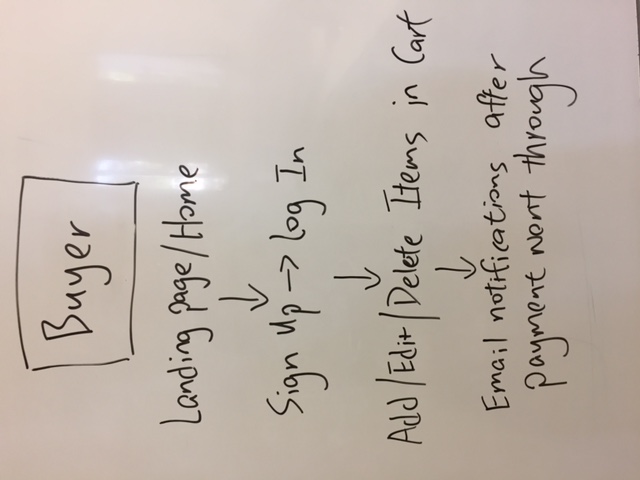 Buyer
Landing page/Home
↓
Sign Up → log In
↓
Add/Edit/Delete Items in Cart
↓
Email notifications after
payment went through